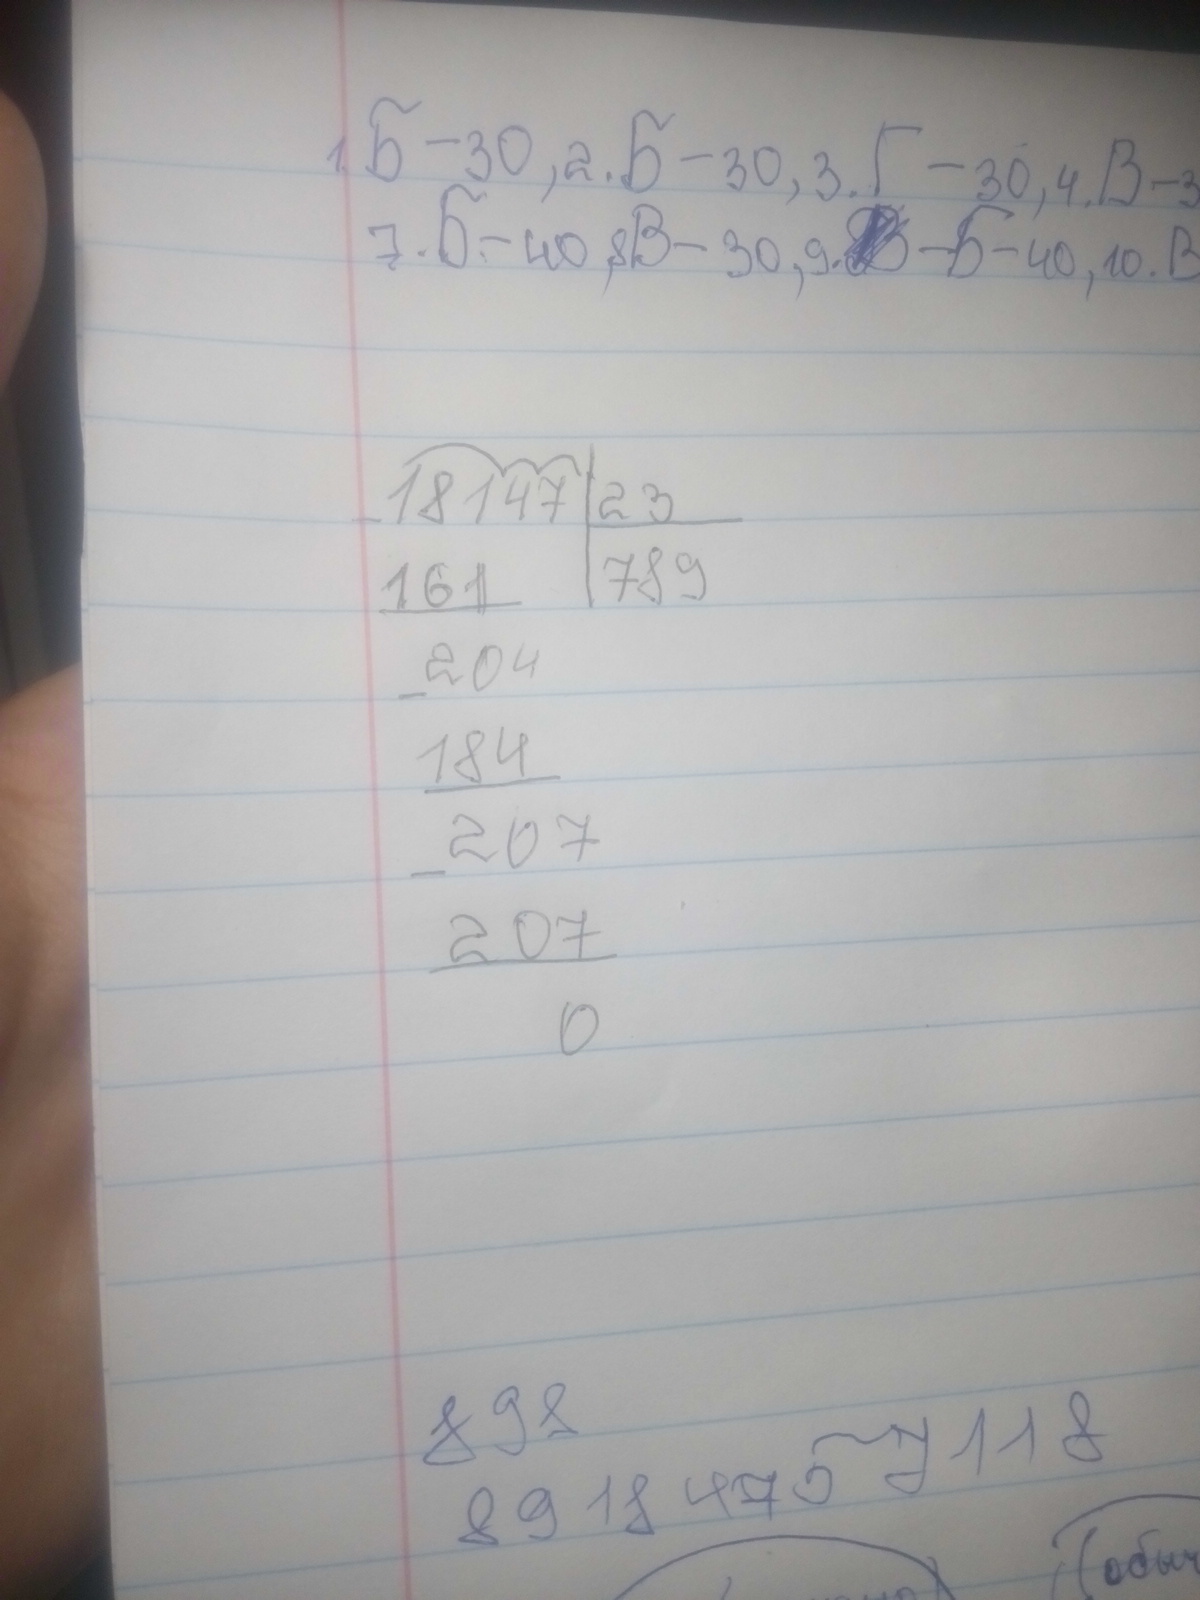 1. Б-30, 2. Б-30, 3. Г-30, 4. В-3
7. Б-40, 8 В-30, 9. -Б-40, 10. В
18147 23
161 789
204
184
207
207
0
898
8918475 7118
(обыч